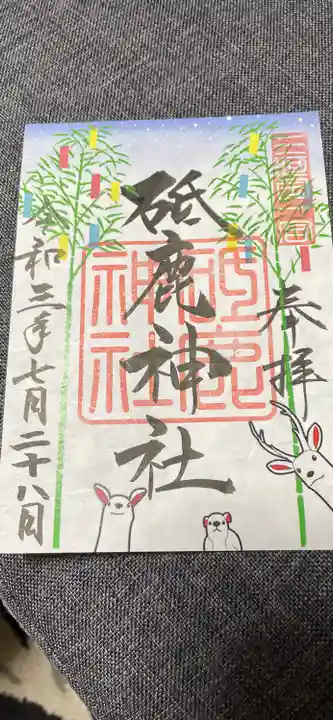 奉拝
砥鹿神社
砥鹿
神社
令和三年七月二十八日